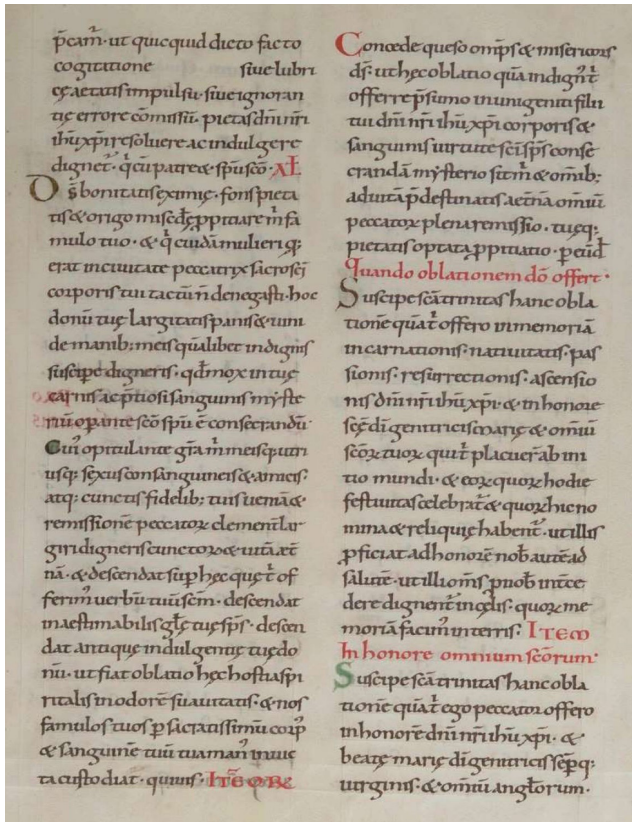 p̄cam̄· ut quicquid dicto facto
cogitatione siue lubri
cę aetatis impulsu· siue ignoran
tię errore cōmissū· pietas dn̄i nr̄i
ih̄u xp̄i resoluere ac indulgere
dignet᷒· q̄ cū patre & sp̄u sc̄o· AL̄
Ds̄ bonitatis eximię· fons pieta
tis & origo mis̄cdę ꝓpitiare m̄ fa
mulo tuo· & q̄ cuidā mulieri q;
erat in ciuitate peccatrix sacrosc̄i
corporis tui tactū n̄ denegasti· hoc
donū tuę largitatis panis & uini
de manib; meis qualibet indignis
suscipe digneris· qd̄ mox in tuę
carnis ac p̄tiosi sanguinis myste
riū opante sc̄o sp̄u ē consecrandū·
Cui᷒ opitulante gr̄a m̄ meisq; utri
usq; sexus consanguineis & amicis·
atq; cunctis fidelib; tuis ueniā &
remissionē peccatoꝝ clement̄ lar
giri digneris cunctoꝝ & uitā aet̄
nā· & descendat sup̄ hęc quę t̄ of
ferim᷒ uerbū tuū sc̄m· descendat
inaestimabilis gl̄ę tuę sp̄s· descen
dat antiquę indulgentię tuę do
nū· ut fiat oblatio hęc hostia spi
ritalis in odorē suauitatis· & nos
famulos tuos ꝑ sacratissimū corp᷒
& sanguinē tuū tua man᷒ inuic
ta custodiat· qui uiuis· ITE͞ OR̄
Concede queso om̄ps & misericors
ds̄· ut hęc oblatio quā indign᷒ t̄
offerre p̄sumo in unigeniti filii
tui dn̄i nr̄i ih̄u xp̄i corporis &
sanguinis uirtute sc̄i sp̄s conse
crandā mysterio sit m̄ & omib;
ad uitā p̄destinatis aet̄nā omiū
peccatoꝝ plena remissio· tuęq;
pietatis optata ꝓpitiatio· ꝑ eund̄
Quando oblationem dō offert·
Suscipe sc̄a trinitas hanc obla
tionē quā t̄ offero in memoriā
incarnationis· natiuitatis· pas
sionis· resurrectionis· ascensio
nis dn̄i nr̄i ih̄u xp̄i· & in honore
sc̄ę dī genitricis marię & omiū
sc̄oꝝ tuoꝝ qui t̄ placuer̄ ab ini
tio mundi· & eoꝝ quoꝝ hodie
festiuitas celebrat᷒ & quoꝝ hic no
mina & reliquię habent᷒· ut illis
ꝓficiat ad honorē nob̄ autē ad
salutē· ut illi om̄s ꝑ nob̄ int̄ce
dere dignent᷒ in cęlis· quoꝝ me
moriā facim᷒ in terris· ITEM
In honore omnium sc̄orum·
Suscipe sc̄a trinitas hanc obla
tionē quā t̄ ego peccator offero
in honorē dn̄i nr̄i ih̄u xp̄i· &
beatę marię dī genitricis sēp̄q;
uirginis· & omiū angl̄orum·